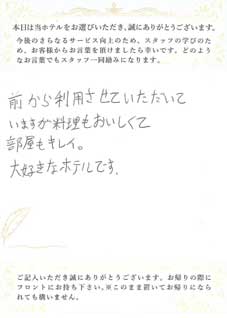 本日は当ホテルをお選びいただき、誠にありがとうございます。
今後のさらなるサービス向上のため、スタッフの学びのた
め、お客様からお言葉を頂けましたら幸いです。どのよう
なお言葉でもスタッフ一同励みになります。
前から利用させていただいて
いますが料理もおいしくて
部屋もキレイ。
大好きなホテルです.
ご記入いただき誠にありがとうございます。お帰りの際に
フロントにお持ち下さい。※このまま置いてお帰りになら
れても構いません。